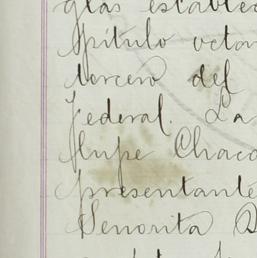 glas establec
pítulo octav
tercero del
Federal. La
Lupe Chaco
presentante
Señorita D